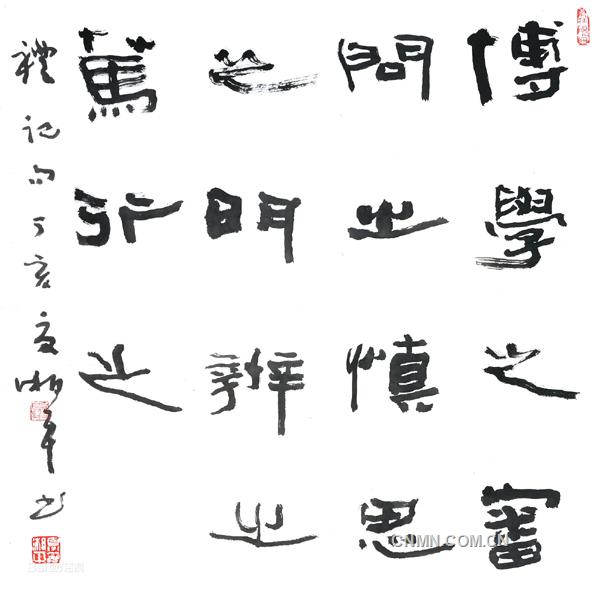 博學之審
問之慎思
之明辨之
篤行之
禮記句丁亥夏湘年书
CNMN.COM.CN